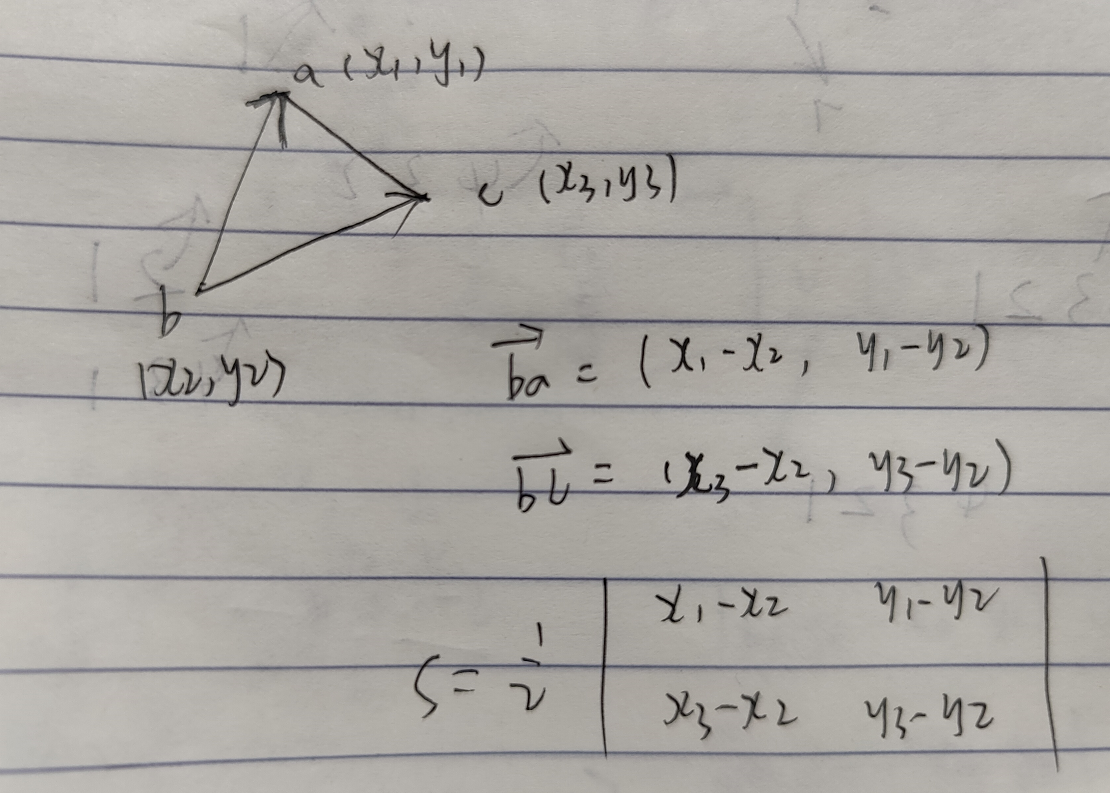 a (x₁, y₁)
c (x₃, y₃)
b
(x₂, y₂)
ba = (x₁-x₂, y₁-y₂)
bc = (x₃-x₂, y₃-y₂)
S = 1/2 | x₁-x₂ y₁-y₂ |
| x₃-x₂ y₃-y₂ |